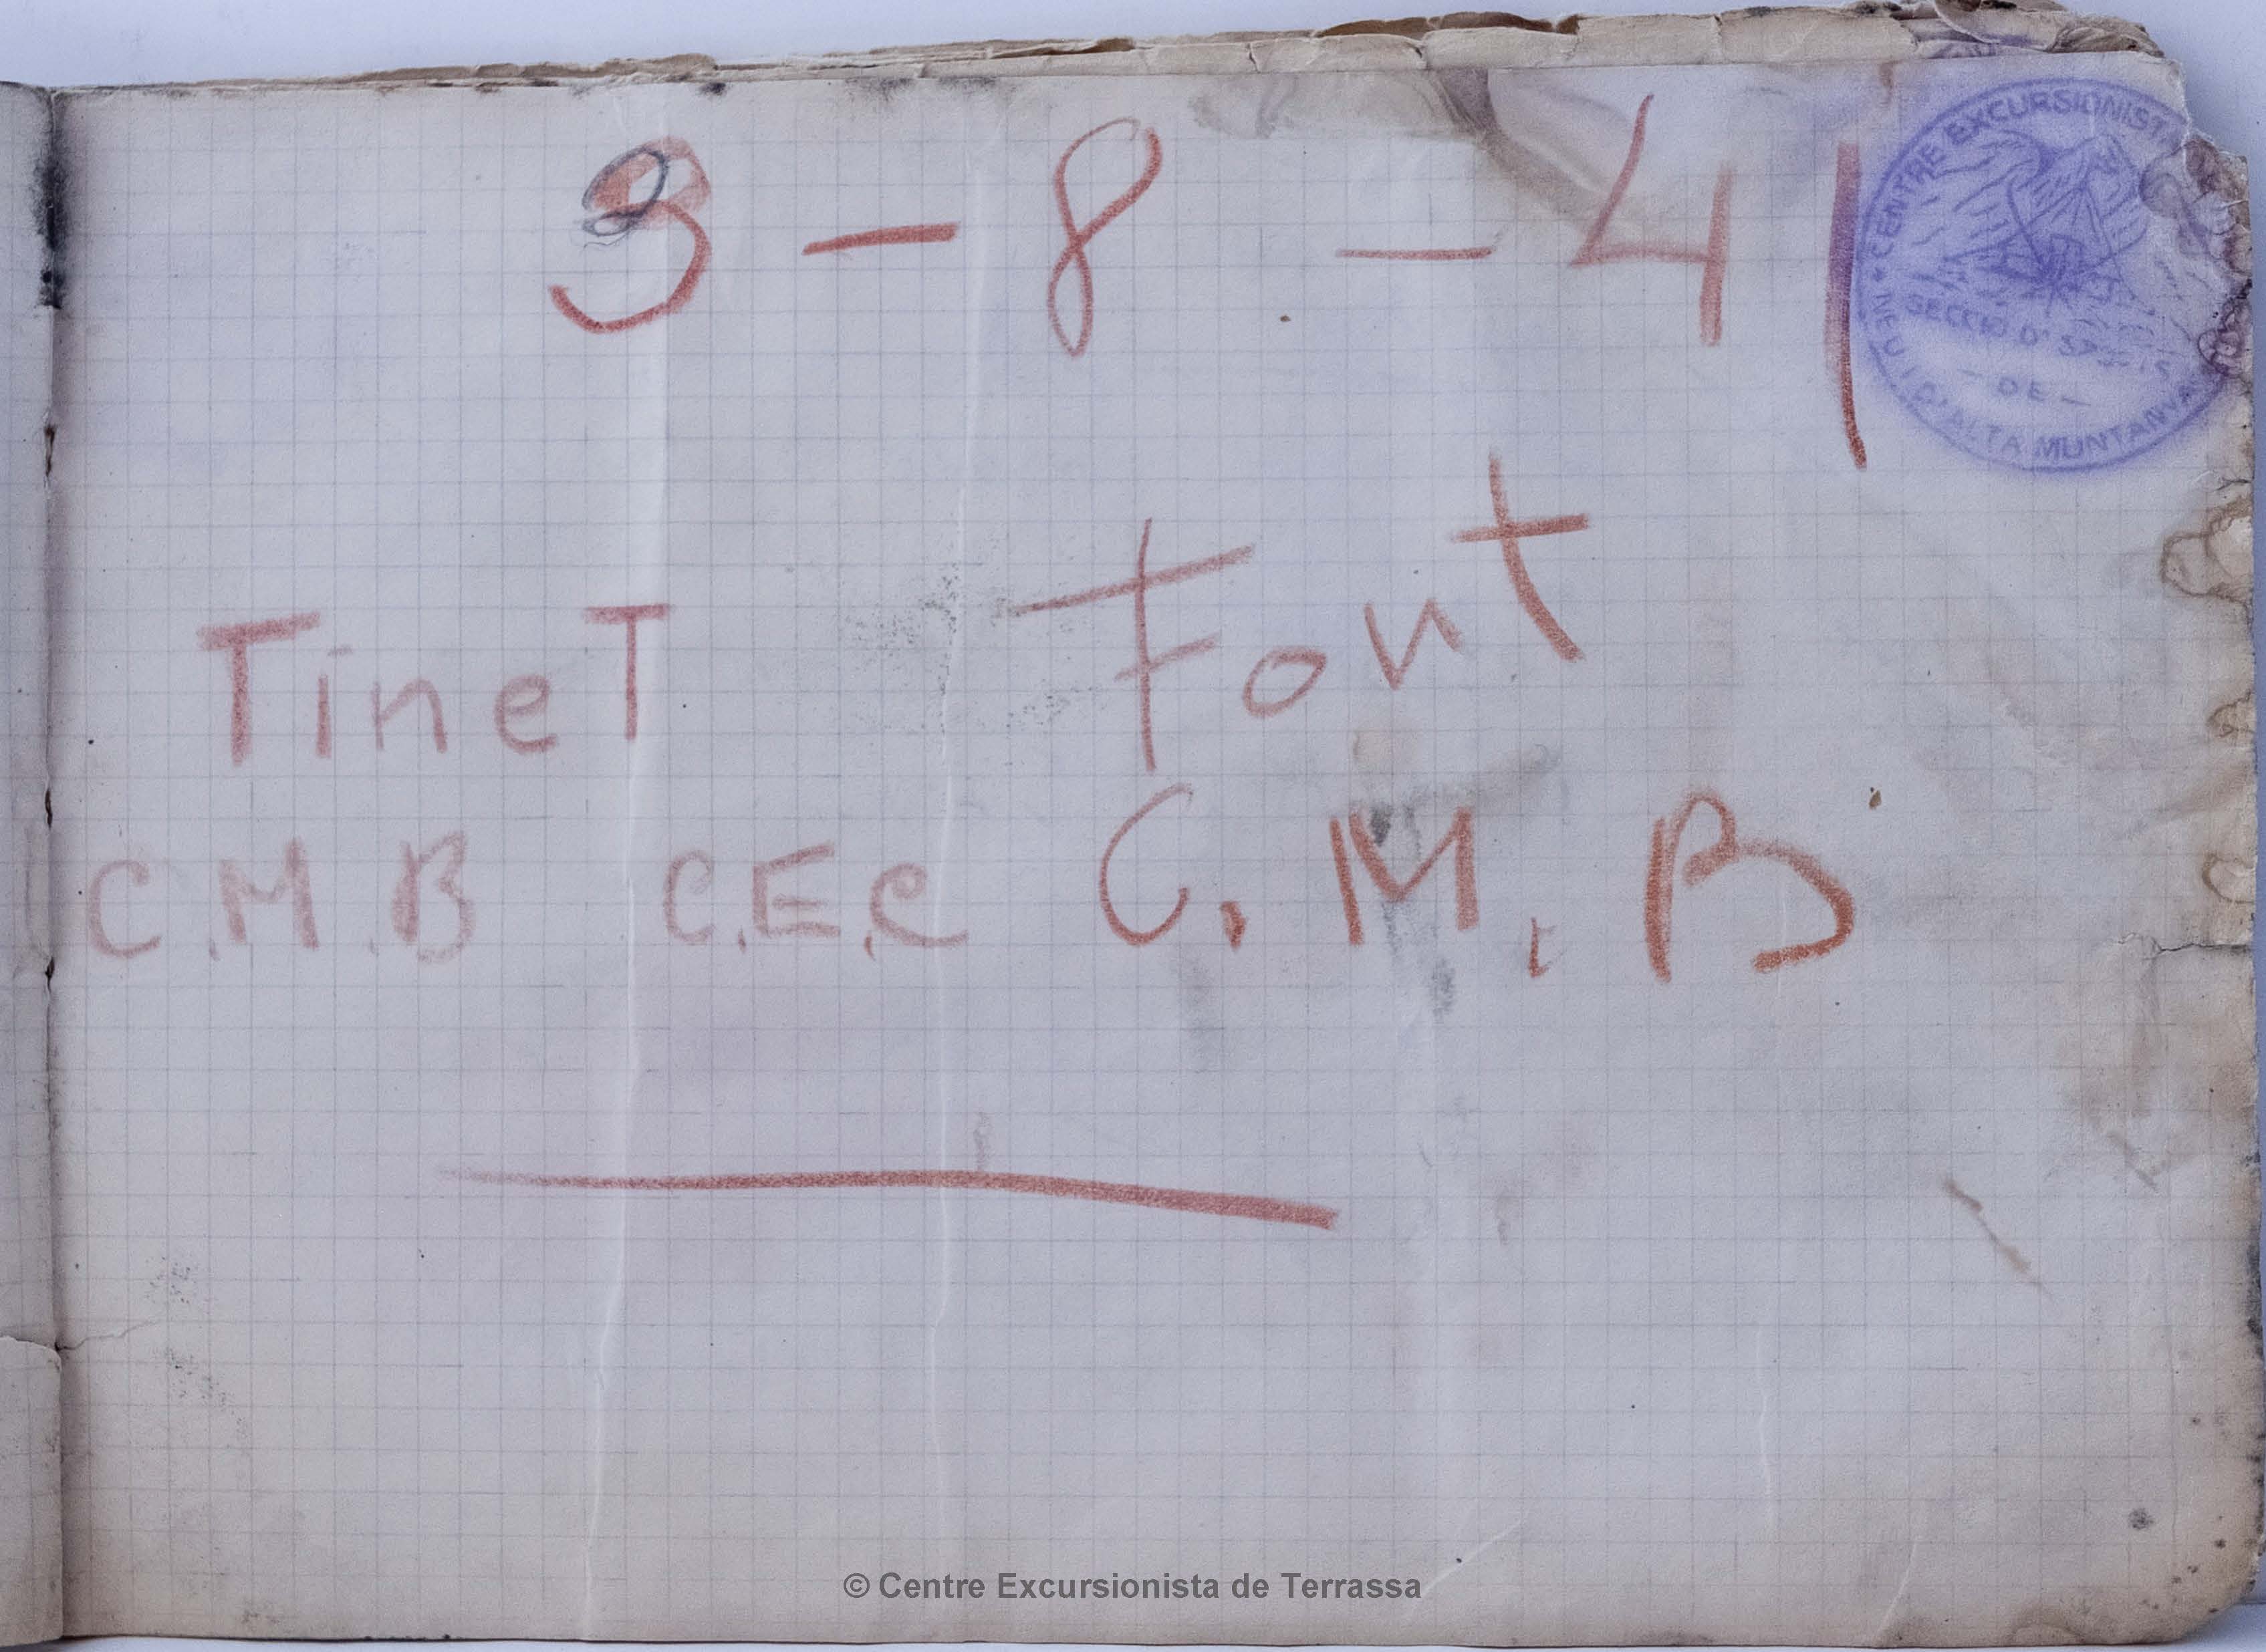 3 - 8 - 41
CENTRE EXCURSIONISTA
SECCIÓ D'
- DE -
NEU I D'ALTA MUNTANYA
TineT Font
C.M.B C.E.C C.M.B
© Centre Excursionista de Terrassa